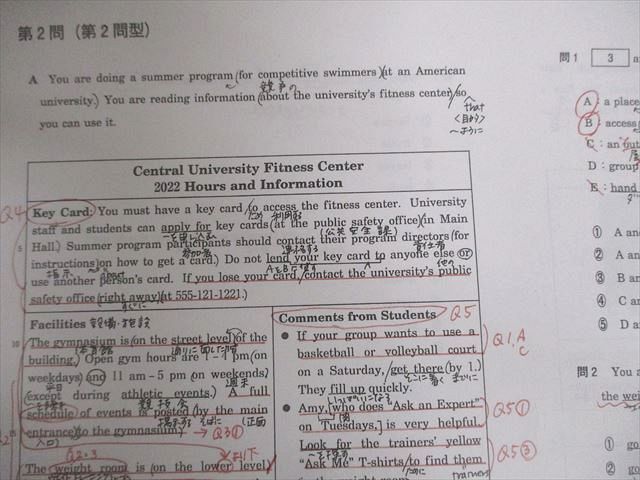 第2問（第2問型）
A You are doing a summer program for competitive swimmers at an American
競争の
university. You are reading information about the university's fitness center so
that
you can use it.
〈目的〉
〜ように
Central University Fitness Center
2022 Hours and Information
Q4
Key Card: You must have a key card to access the fitness center. University
ため 利用する
staff and students can apply for key cards at the public safety office in Main
を申し込む
(公共安全課)
5 Hall. Summer program participants should contact their program directors for
参加者
連絡する
責任者
instructions on how to get a card. Do not lend your key card to anyone else or
指示
AをBに貸す
他の
use another person's card. If you lose your card, contact the university's public
safety office right away at 555-121-1221.
すぐに
Facilities 設備・施設
10 The gymnasium is on the street level of the
体育館
通りに面した階
building. Open gym hours are 1–4 pm on
weekdays and 11 am–5 pm on weekends
平日
週末
except during athletic events. A full
schedule of events is posted by the main
そばに
(正面
entrance to the gymnasium.
入口)
→ Q3①
Q2・3
The weight room is on the lower level
地下
Comments from Students
Q5
If your group wants to use a
basketball or volleyball court
Q1. A
C
on a Saturday, get there by 1.
そこに着く
までに
They fill up quickly.
Amy, who does "Ask an Expert"
Q5①
on Tuesdays, is very helpful.
Look for the trainers' yellow
"Ask Me" T-shirts to find them
Q5③
ために
trainers
問1 3
A: a place
B: access
C: an out
D: group
E: hand
① A an
② A an
③ B an
④ C an
⑤ D a
問2
the wei
① go
② go